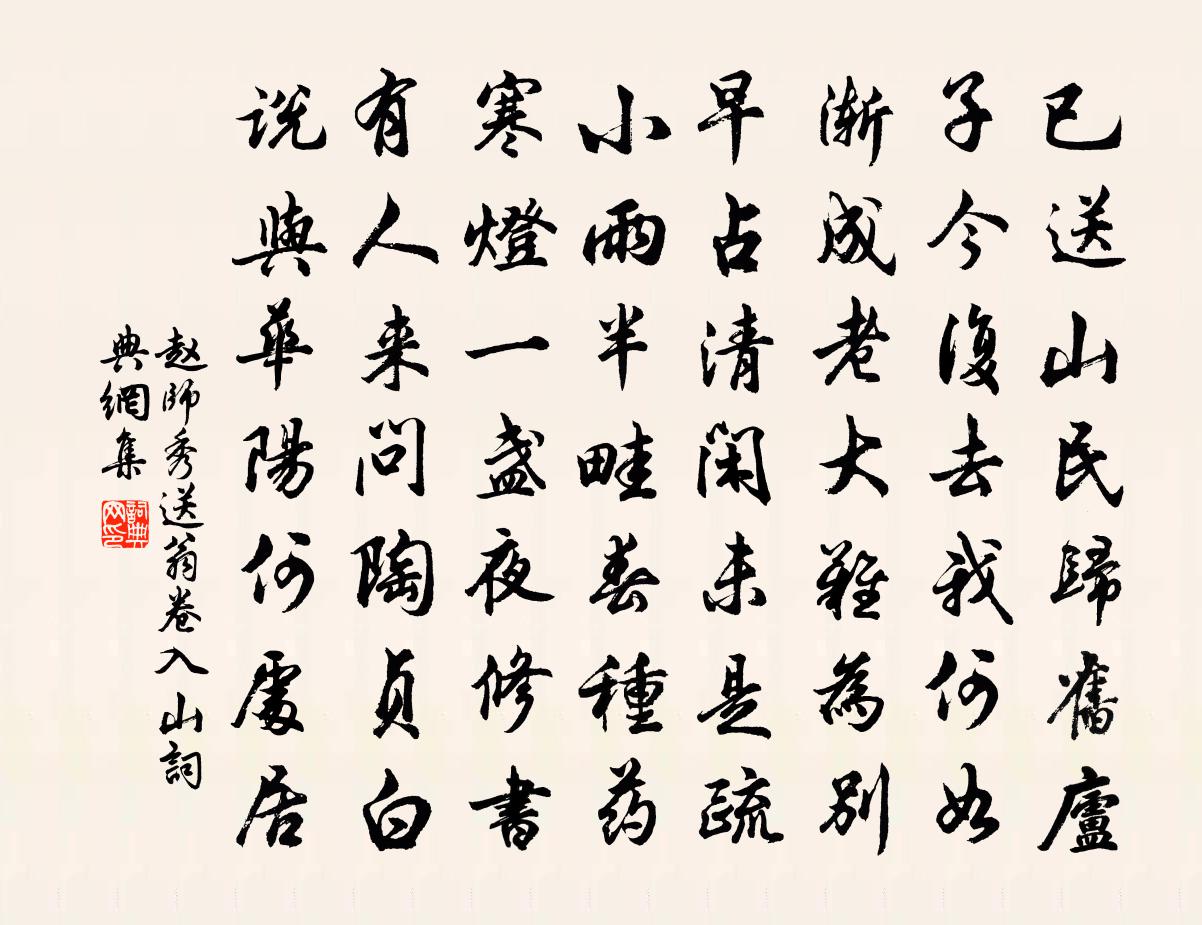 已送山民歸舊廬
子今復去我何如
漸成老大難為别
早占清閑未是疏
小雨半畦春種药
寒燈一盏夜修書
有人来问陶貞白
说與華陽何處居
赵師秀送翁卷入山詞
典網集
詞典网印